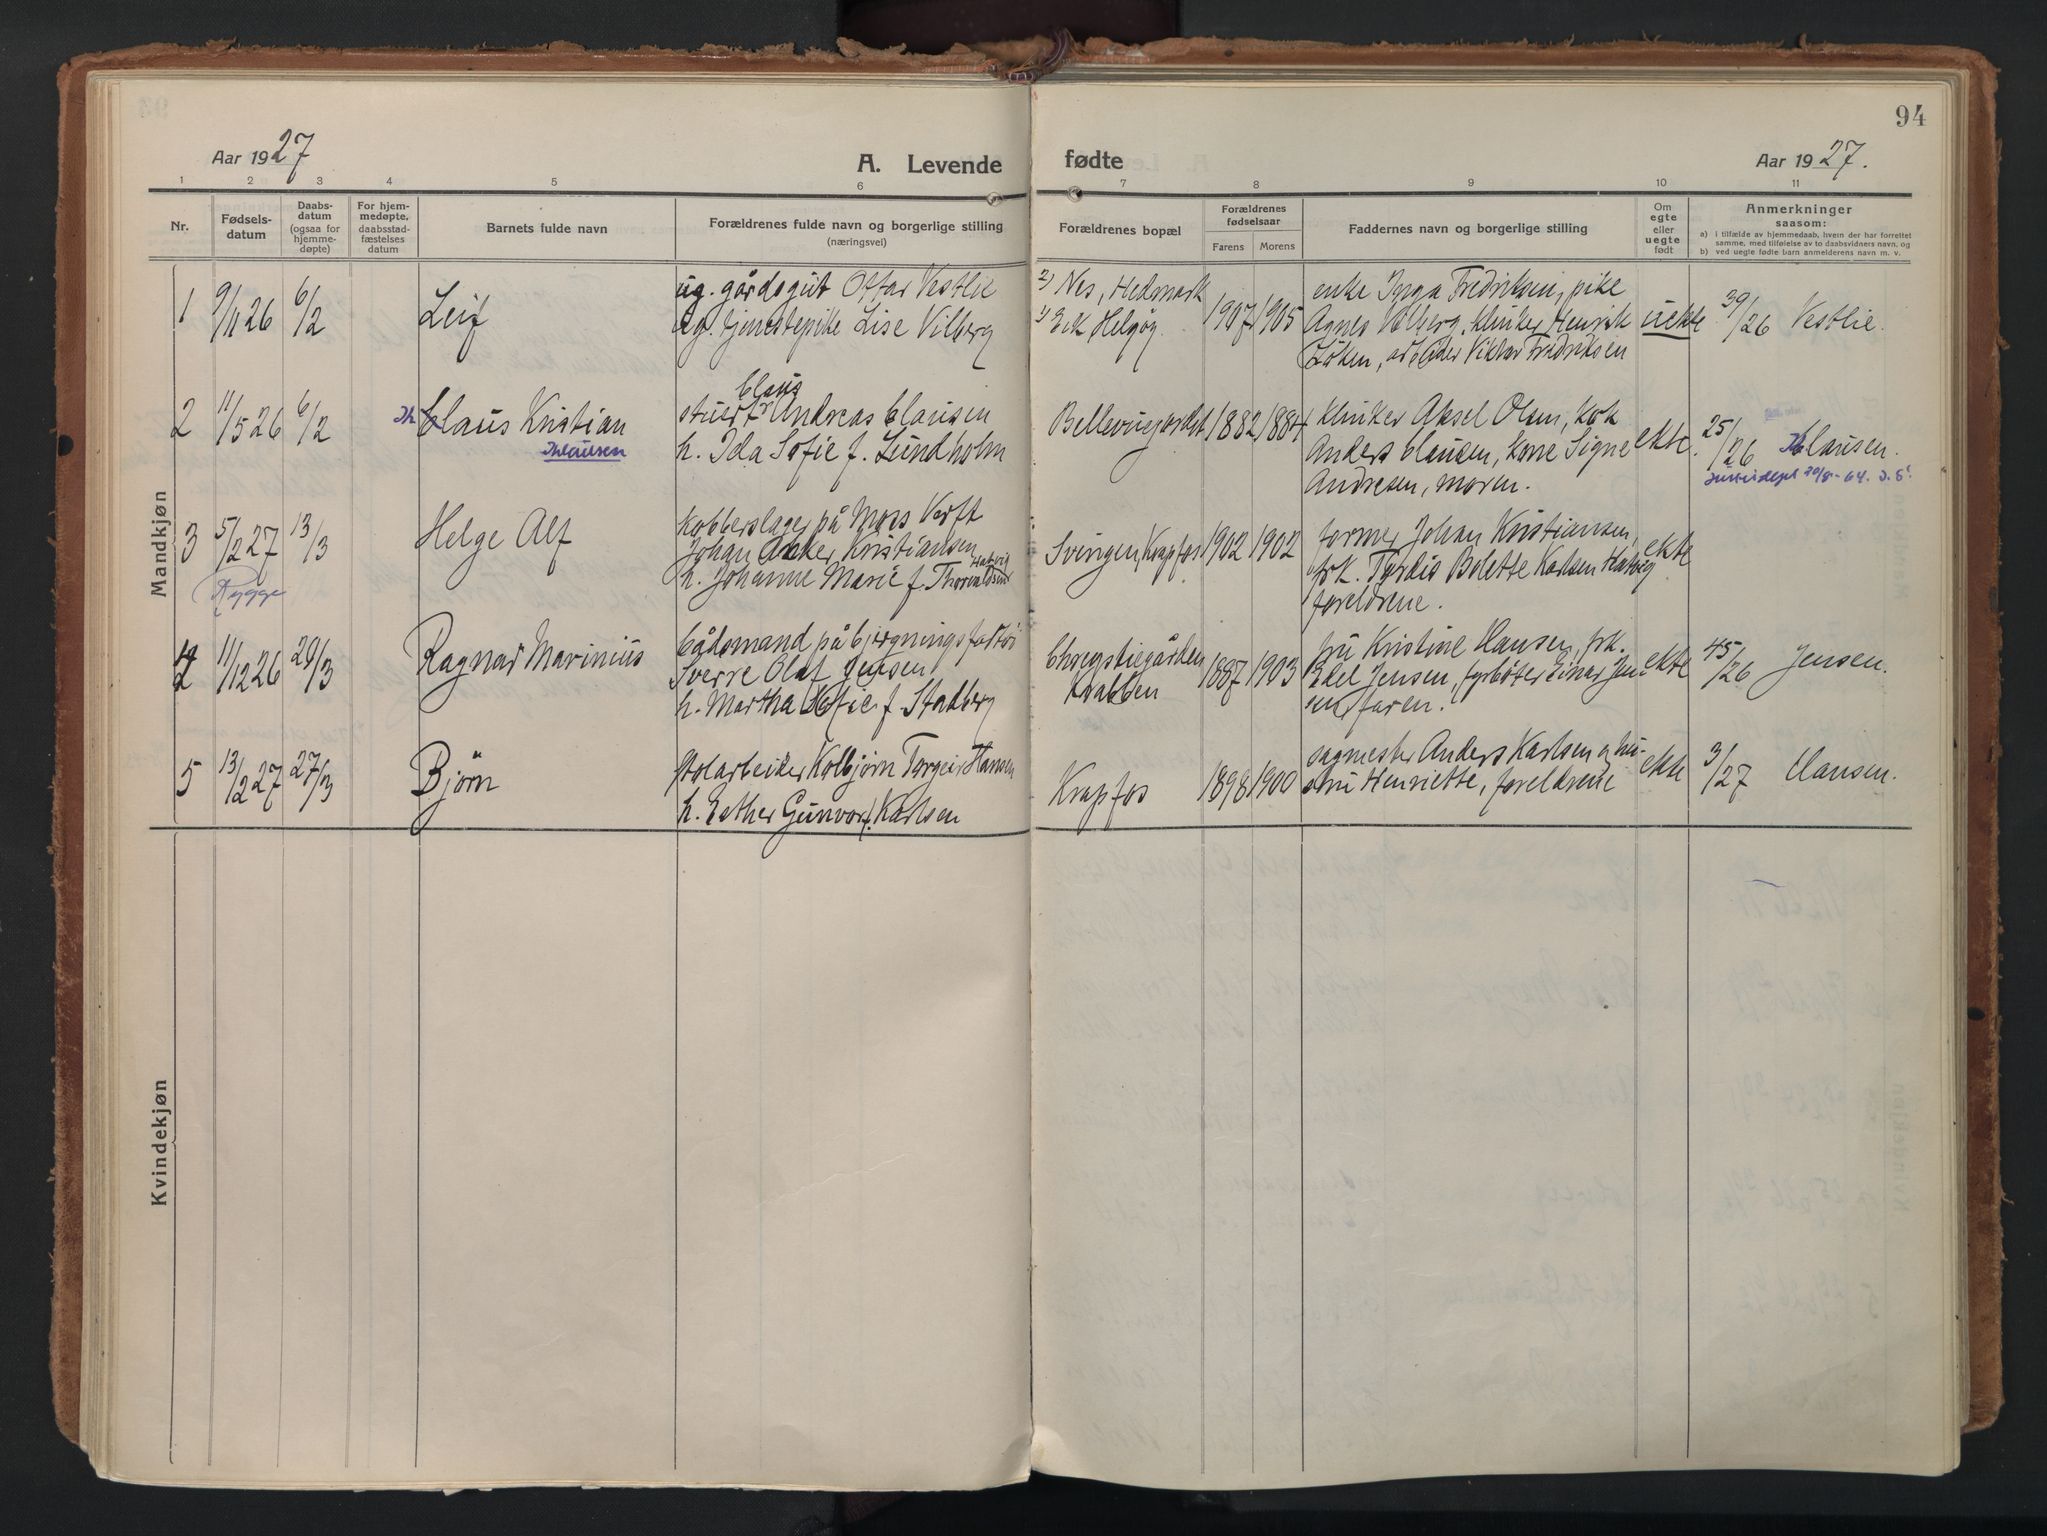 94
Aar 1927
A. Levende fødte
Aar 1927.
1 2 3 4 5 6 7 8 9 10 11
Nr.
Fødsels-
datum
Daabs-
datum
(ogsaa for
hjemme-
døpte)
For hjem-
medøpte,
daabsstad-
fæstelses
datum
Barnets fulde navn
Forældrenes fulde navn og borgerlige stilling
(næringsvei)
Forældrenes bopæl
Forældrenes
fødselsaar
Farens Morens
Faddernes navn og borgerlige stilling
Om
egte
eller
uegte
født
Anmerkninger
saasom:
a) i tilfælde av hjemmedaab, hvem der har forrettet
samme, med tilføielse av to daabsvidners navn, og
b) ved uegte fødte barn anmelderens navn m. v.
Mandkjøn
1 9/11 26 6/2 Leif
ug. gårdsgut Ottar Vestlie
ug. tjenestepike Lise Vilberg
2) Nes, Hedmark
1) Helgøy
1907 1905
enke Fredriksen, pike
Agnes Vilberg, klinker Henrik
Løken, Viktor Fredriksen
uekte 39/26 Vestlie.
2 11/5 26 6/2 Th Claus Kristian
Thlausen
Claus
stuert Andreas Clausen
h. Ida Sofie f. Lundholm
Bellevuejordet 1882 1884
klinker Aksel Olsen, kok
Anders Clausen, kone Signe
Andresen, moren.
ekte. 25/26 Clausen.
Justisdept 20/8-64.
3 5/2 27 13/3 Helge Alf
Rygge
kobberslager på Moss Verft
Johan Anker Kristiansen
Hatvig
h. Johanne Marie f. Thorvaldsen
Svingen, Krapfos 1902 1902
former Johan Kristiansen,
frk. Tordis Bolette Karlsen Hatvig
foreldrene.
ekte
4 11/12 26 20/3 Ragnar Marinius
bådsmand på bjergningsfartøi
Sverre Olaf Jensen
h. Martha Sofie f. Stadberg
Chrystiegården
Krabben
1887 1903
fru Kristine Hansen, frk.
Edel Jensen, fyrbøter Einar Jen
sen, faren.
ekte 45/26 Jensen.
5 13/2 27 27/3 Bjørn
stolarbeider Kolbjørn Torgeir Hansen
h. Esther Gunvor f. Karlsen
Krapfos 1898 1900
sagmester Anders Karlsen og hu-
stru Henriette, foreldrene
ekte 3/27 Hansen.
Kvindekjøn